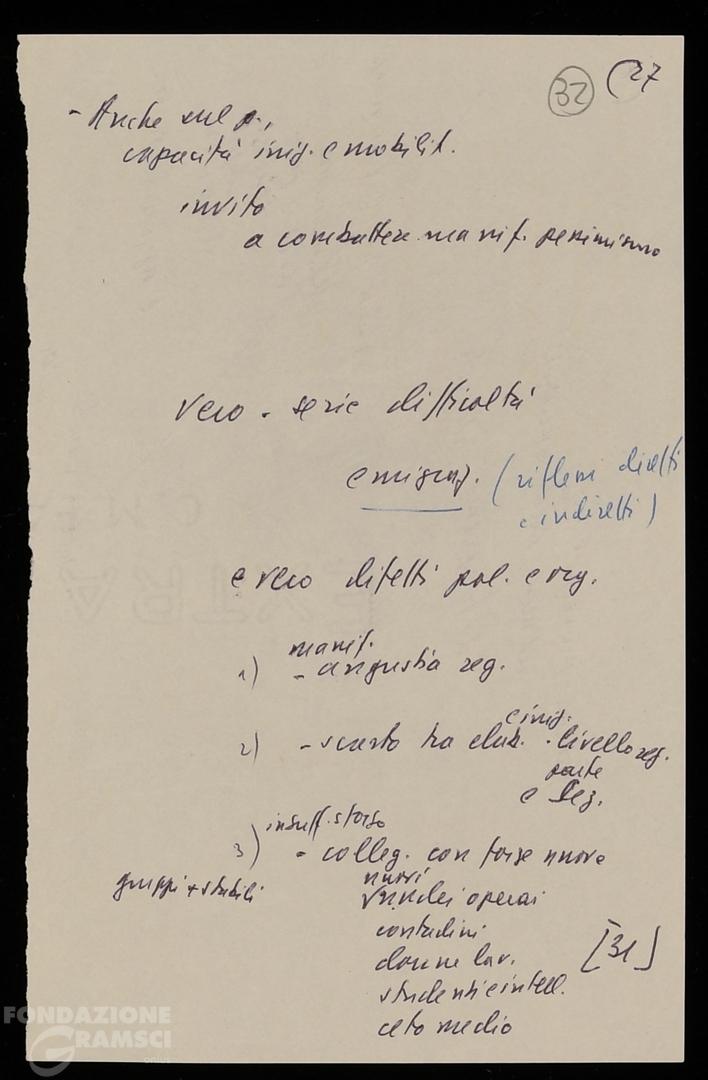 32 (27
- Anche sul p.,
capacità iniz. e mobilit.
invito
a combattere manif. pessimismo
vero - serie difficoltà
emigraz. (riflessi diretti
e indiretti)
e vero difetti pol. e org.
manif.
1) - angustia reg.
e iniz.
2) - scarto tra elab. - livello reg.
parte
e Sez.
insuff. sforzo
3) - colleg. con forze nuove
gruppi + stabili
nuovi
nuclei operai
contadini
donne lav.
[31]
studenti e intell.
ceto medio
FONDAZIONE
GRAMSCI
onlus